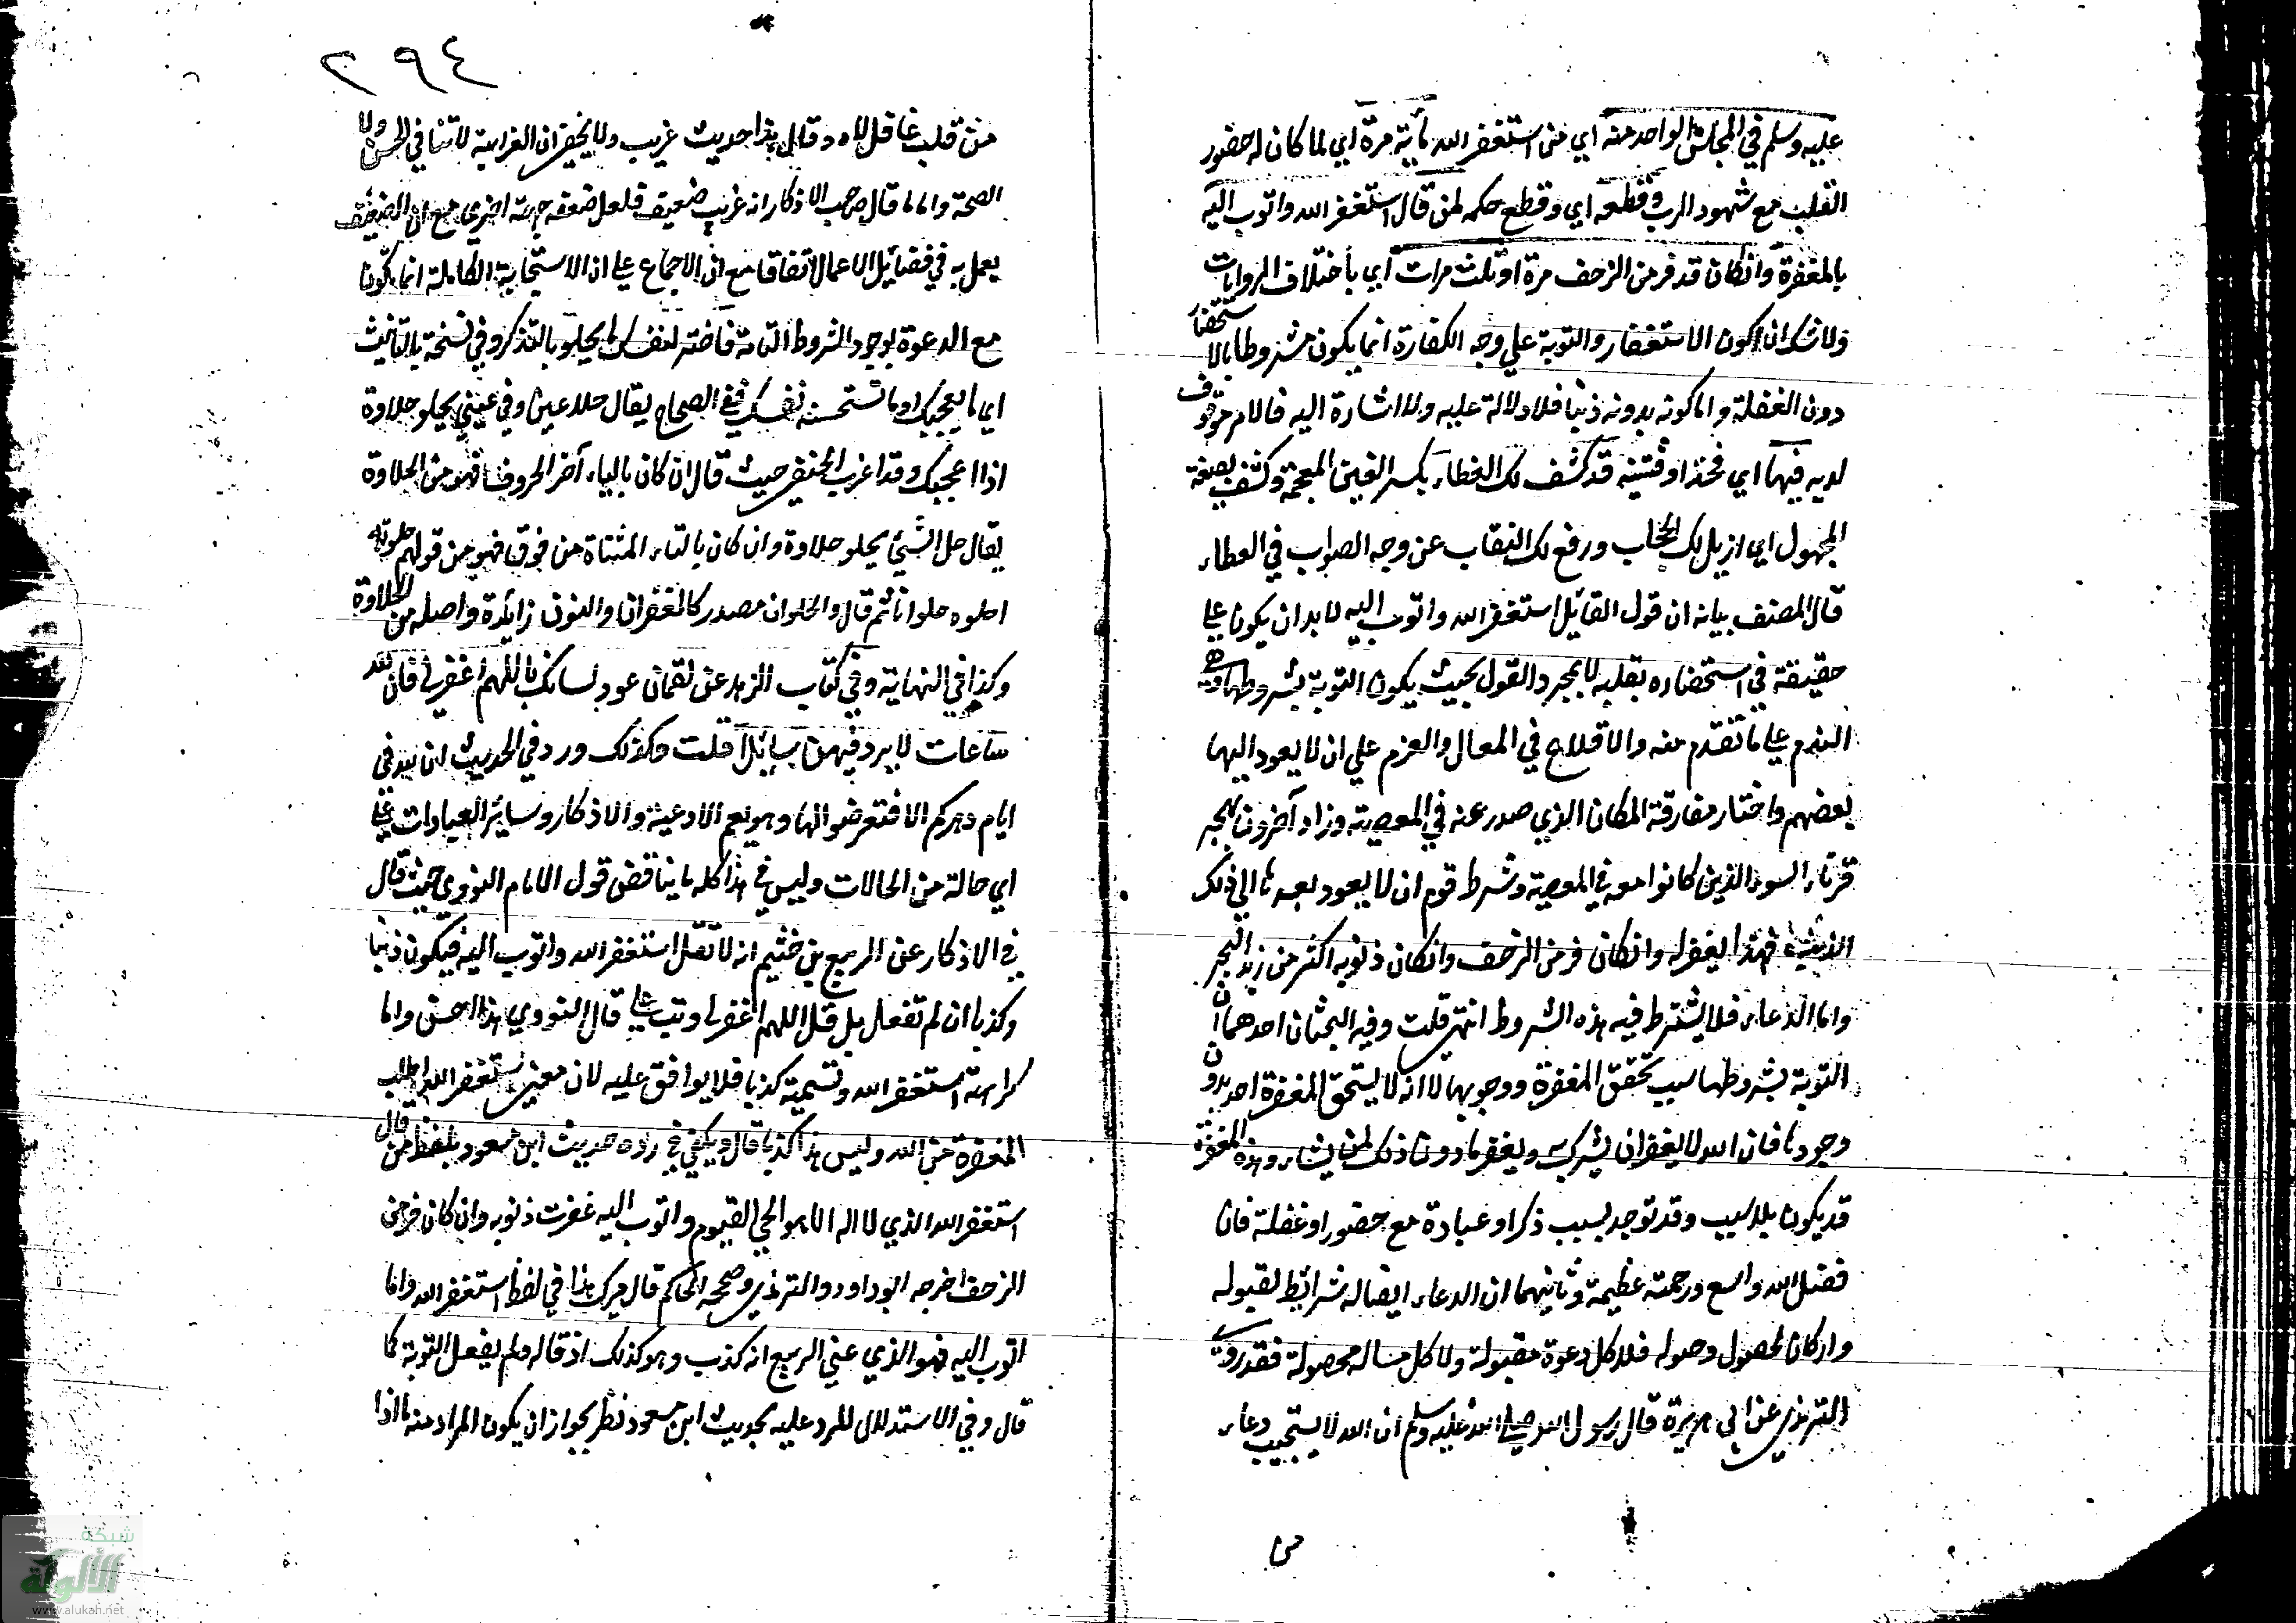 عليه وسلم في المجلس الواحد منه اي من استغفر الله مأية مرة اي لما كان له حضور
القلب مع شهود الرب وقطعه اي وقطع حكمه لمن قال استغفر الله واتوب اليه
بالمغفرة وان كان قد فر من الزحف مرة او ثلث مرات اي بأختلاف الروايات
ولا شك ان كون الاستغفار والتوبة علي وجه الكفارة انما يكون مشروطا بالاستحضار
دون الغفلة واما كونه بدونه ذنبا فلا دلالة عليه ولا اشارة اليه فالامر موقوف
لديه فيهما اي فحذا وقتينه قد كشف لك الغطاء بكسر الغين المعجمة وكشف بصيغة
المجهول اي ازيل لك الحجاب ورفع لك النقاب عن وجه الصواب في العطاء
قال المصنف بيانه ان قول القائل استغفر الله واتوب اليه لا بد ان يكون علي
حقيقة في استحضاره بقلبه لا بمجرد القول بحيث يكون التوبة بشروطها وهي
الندم علي ما تقدم منه والاقلاع في الحال والعزم علي ان لا يعود اليها
بعضهم واختار مفارقة المكان الذي صدر عنه في المعصية وزاد آخرون هجر
قرناء السوء الذين كانوا معه في المعصية وشرط قوم ان لا يعود بعدها الي ذلك
الذنب فهذا يغفر له وان كان فر من الزحف وان كان ذنوبه اكثر من زبد البحر
واما الدعاء فلا يشترط فيه هذه الشروط انتهي قلت وفيه البحثان احدهما ان
التوبة بشروطها سبب تحقق المغفرة ووجوبها لا انه لا يستحق المغفرة احد بدون
وجودها فان الله لا يغفر ان يشرك به ويغفر ما دون ذلك لمن يشاء وهذه المغفرة
قد يكون بلا سبب وقد توجد بسبب ذكر او عبادة مع حضور او غفلة فان
فضل الله واسع ورحمته عظيمة وثانيهما ان الدعاء ايضا له شرائط لقبوله
واركان لحصول وصوله فلا كل دعوة مقبولة ولا كل مسألة محصولة فقد روي
الترمذي عن ابي هريرة قال رسول الله صلي الله عليه وسلم ان الله لا يستجيب دعاء
من
٢٩٤
من قلب غافل لاه وقال هذا حديث غريب ولا يخفي ان الغرابية لا تنافي الحسن ولا
الصحة واما ما قال صاحب الاذكار انه غريب ضعيف فلعل ضعفه جهته اخري مع ان الضعيف
يعمل به في فضائل الاعمال اتفاقا مع ان الاجماع علي ان الاستجابة الكاملة انما تكون
مع الدعوة لوجود الشروط التامة فاختر لنفسك ما يحلو بالتذكير وفي نسخة بالتأنيث
اي ما يعجبك او ما تستحسنه نفسك ففي الصحاح يقال حلا عيني وفي عيني يحلو حلاوة
اذا اعجبك وقد اغرب الحنفي حيث قال ان كان بالياء آخر الحروف فهو من الحلاوة
يقال حل الشيئ يحلو حلاوة وان كان بالتاء المثناة من فوق فهو من قولهم حلوته
احلوه حلوانا ثم قال والحلوان مصدر كالغفران والنون زايدة واصله من الحلاوة
وكذا في النهاية وفي كتاب الزهد عن لقمان عود لسانك باللهم اغفر لي فان لله
ساعات لا يرد فيهن سايلا قلت وكذلك ورد في الحديث ان لله في
ايام دهركم الا فتعرضوا لها وهو يعم الادعية والاذكار وساير العبادات علي
اي حالة من الحالات وليس في هذا كله ما يناقض قول الامام النووي حيث قال
في الاذكار عن الربيع بن خثيم انه لا تقل استغفر الله واتوب اليه فيكون ذنبا
وكذبا ان لم تفعل بل قل اللهم اغفر لي وتب علي قال النووي هذا احسن واما
كراهته استغفر الله وتسمية كذبا فلا يوافق عليه لان معني استغفر الله اطلب
المغفرة من الله وليس هذا كذبا قال ويكفي في رده حديث ابن مسعود بلفظ من قال
استغفر الله الذي لا اله الا هو الحي القيوم واتوب اليه غفرت ذنوبه وان كان فر من
الزحف اخرجه ابو داود والترمذي وصححه الحاكم قال ميرك هذا في لفظ استغفر الله واما
اتوب اليه فهو الذي عني الربيع انه كذب وهو كذلك اذ قاله ولم يفعل التوبة كما
قال وفي الاستدلال للرد عليه بحديث ابن مسعود نظر لجواز ان يكون المراد منه ما اذا
شبكة
الألوكة
www.alukah.net